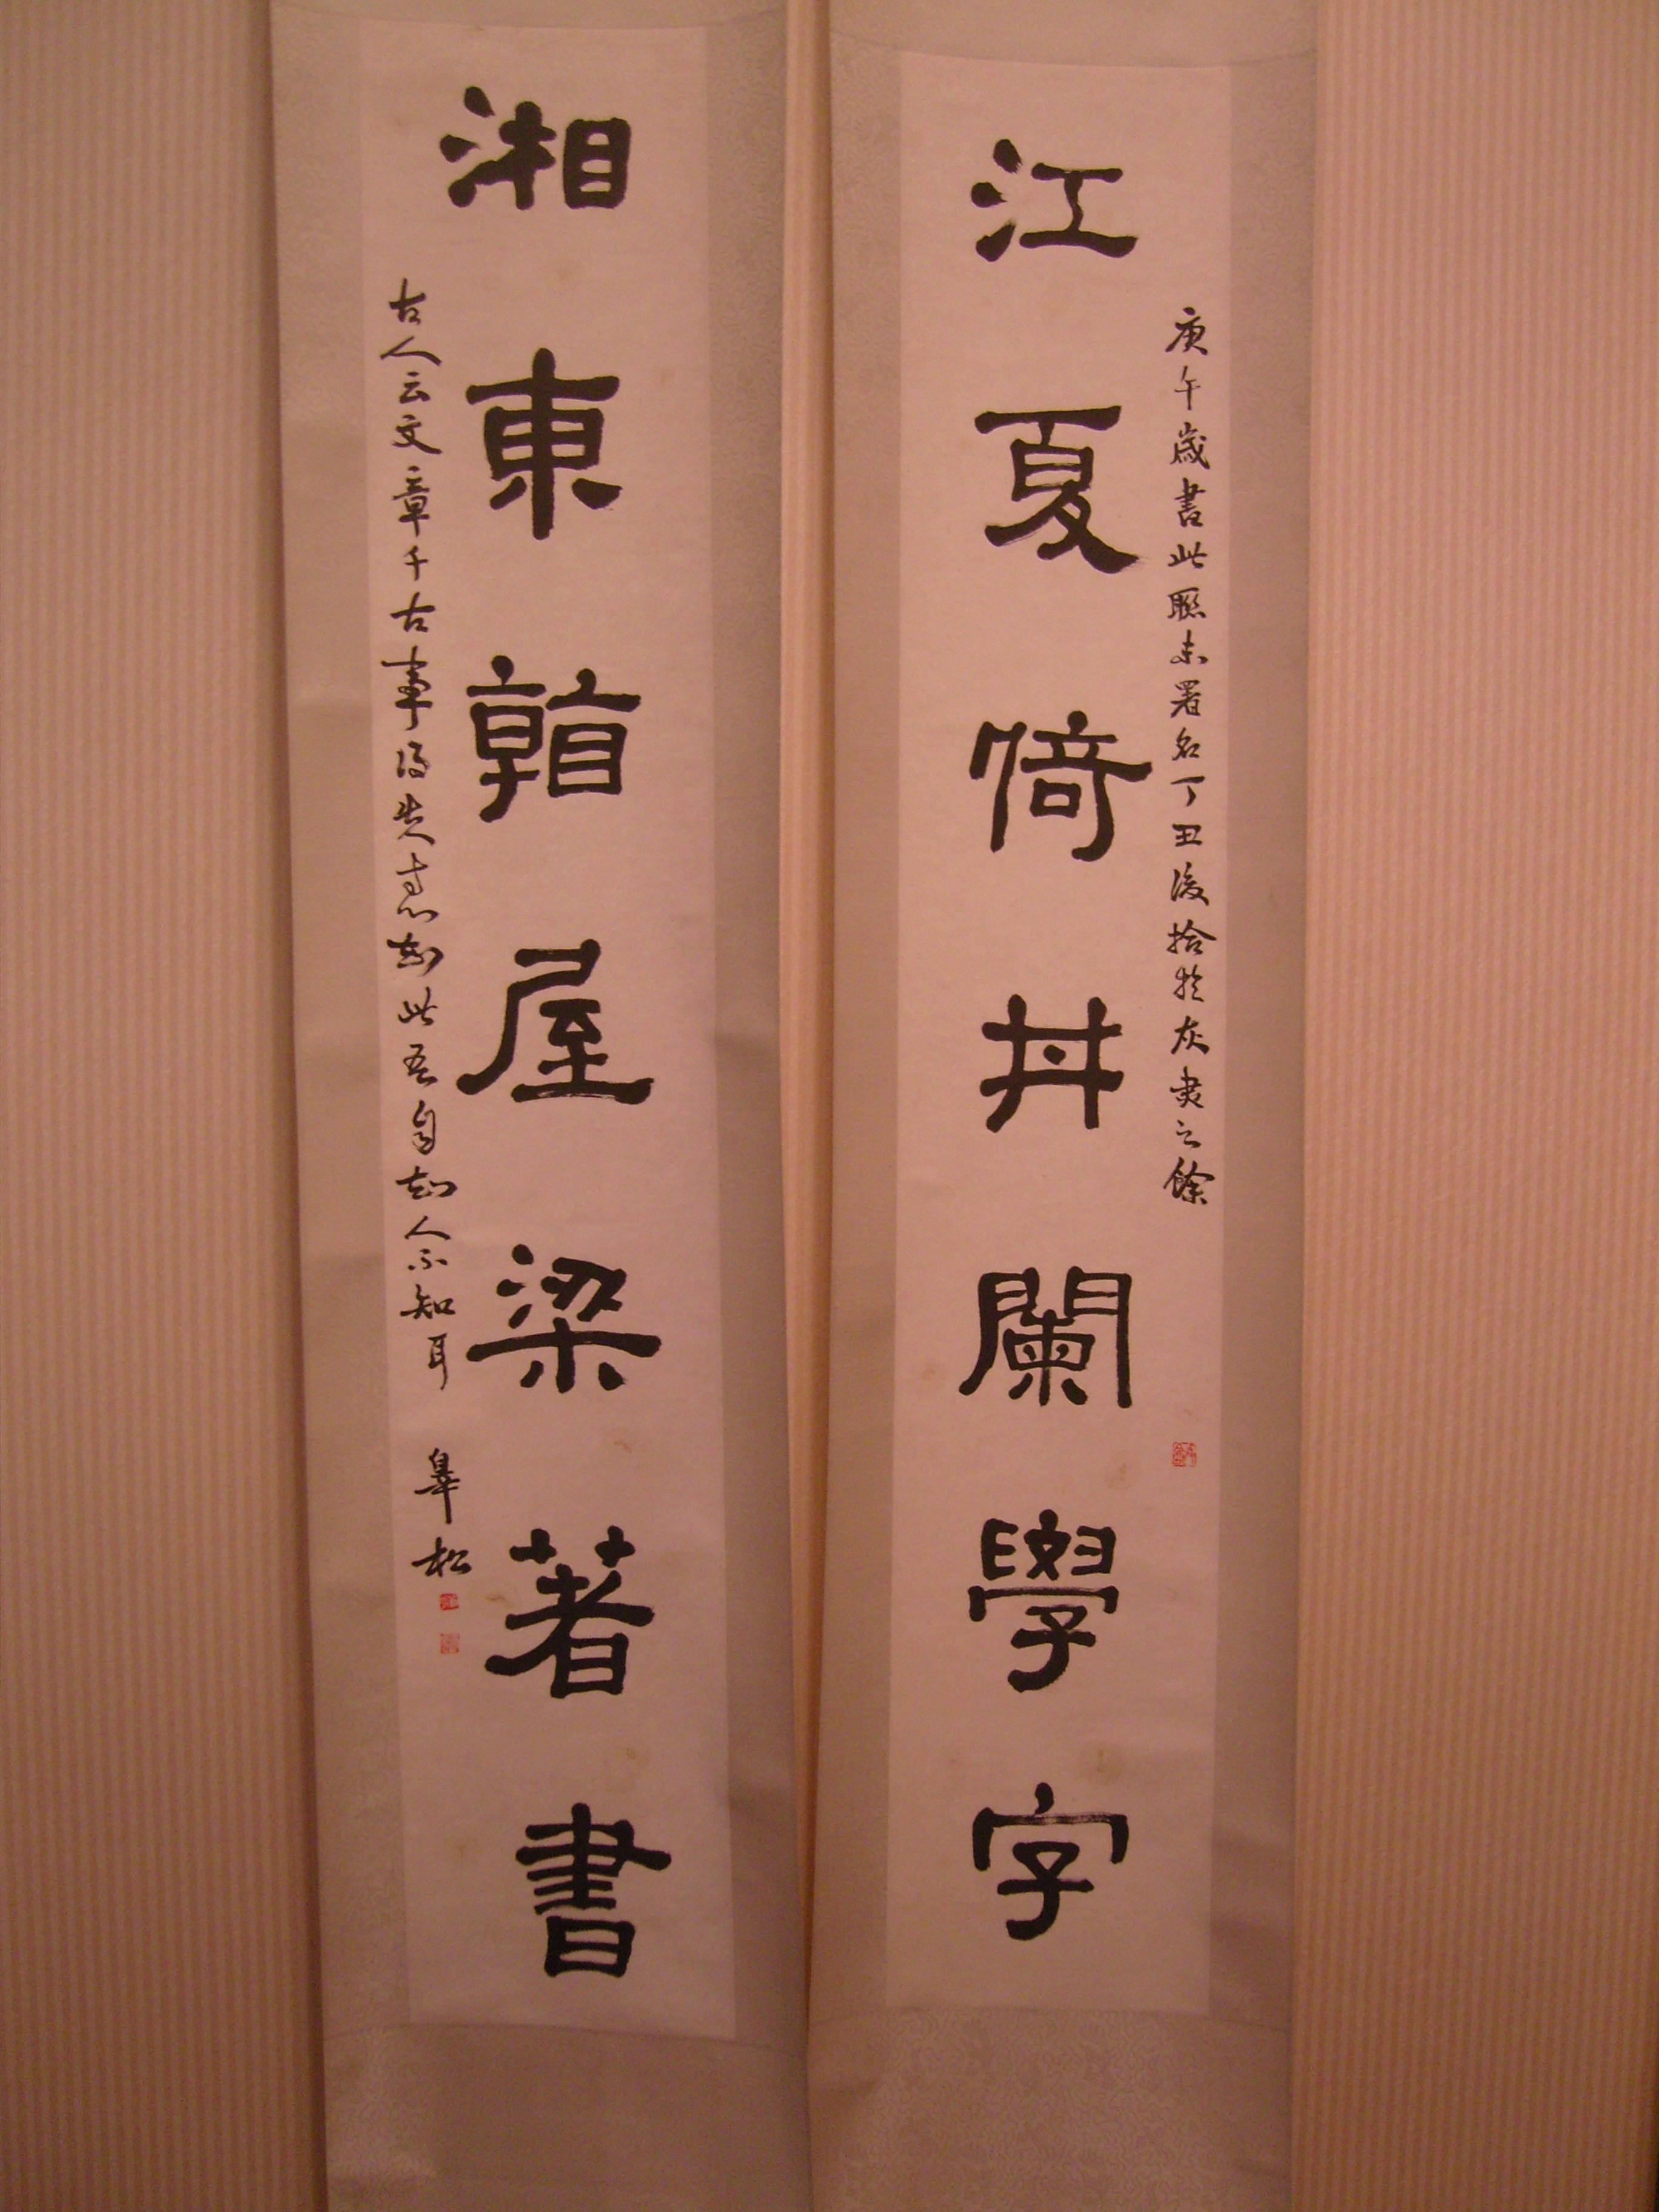 庚午歲書此聯未署名丁丑後拾於灰之餘
江夏倚丼闌學字
湘東屋梁著書
古人云文章千古事得失寸心知此吾自知人不知耳
皋松